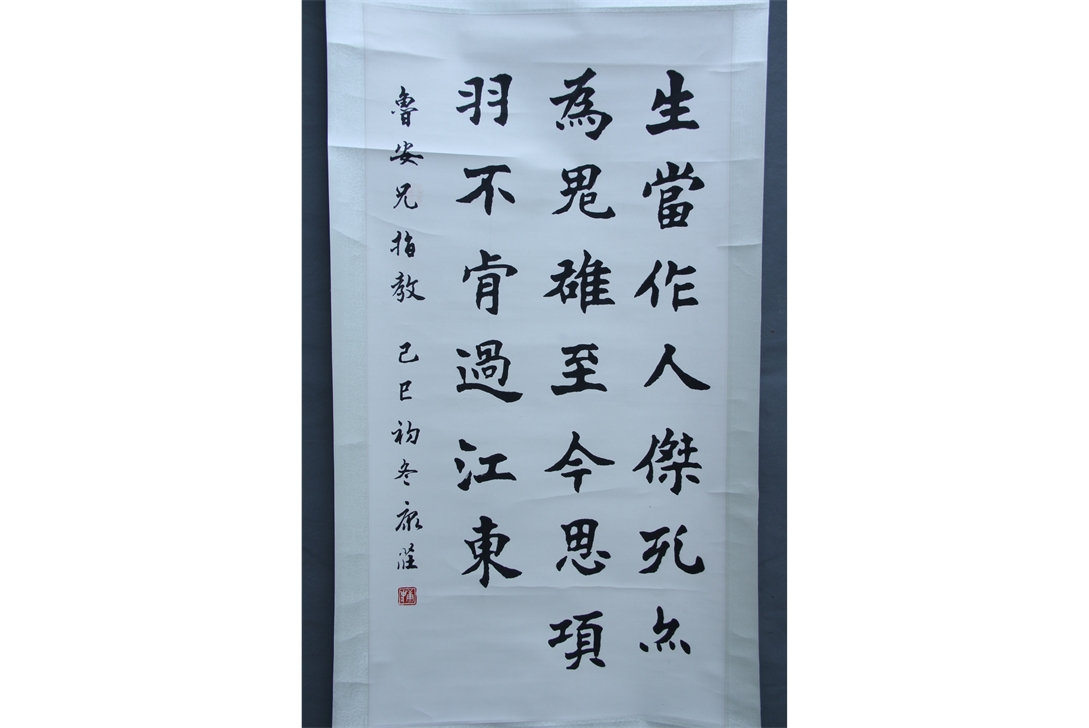 生當作人傑死亦
為鬼雄至今思項
羽不肯過江東
魯安兄指教 己巳初冬 康莊